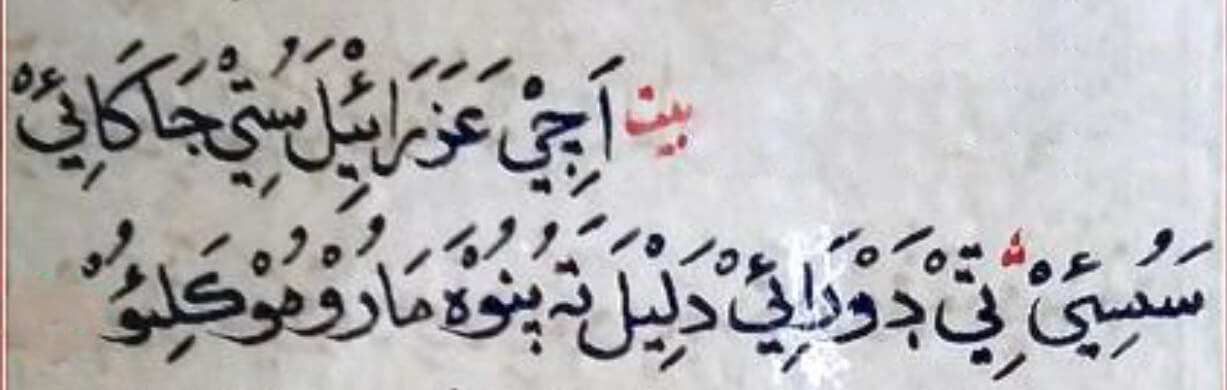 بيت اَچِيْ عَزَرَائِيْلَ سُتِيْ جَاکَائِيْ
سَسُئِيْ تِيّْ دَوْرَائِيْ دَلِيْلَ تَہ پُنُوْہَ مَارُوْ مُوْکَلِئُوْ